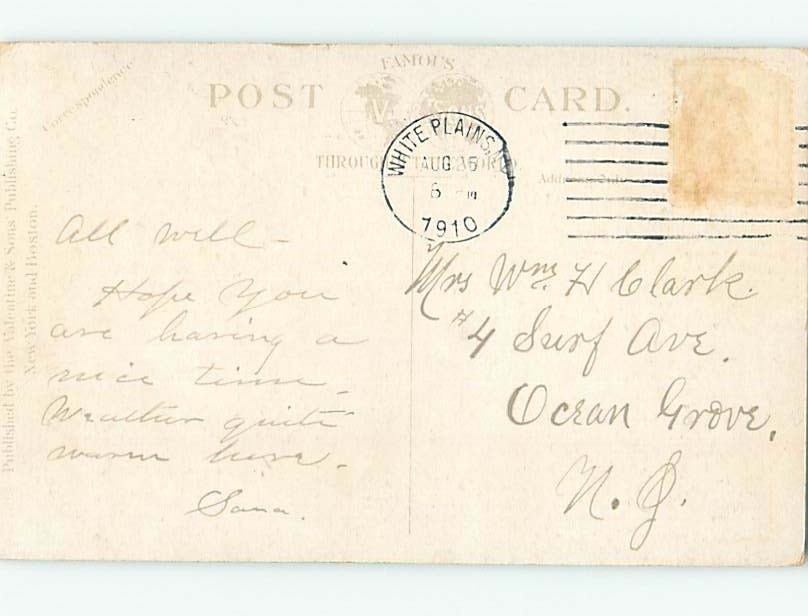 FAMOUS
POST CARD.
THROUGH
Correspondence
Published by the Valentine & Sons Publishing Co.
New York and Boston.
WHITE PLAINS,
AUG 25
6
1910
All well -
Hope you
are having a
nice time.
Weather quite
warm here.
Mrs Wm. H Clark.
#4 Surf Ave.
Ocean Grove,
N. J.